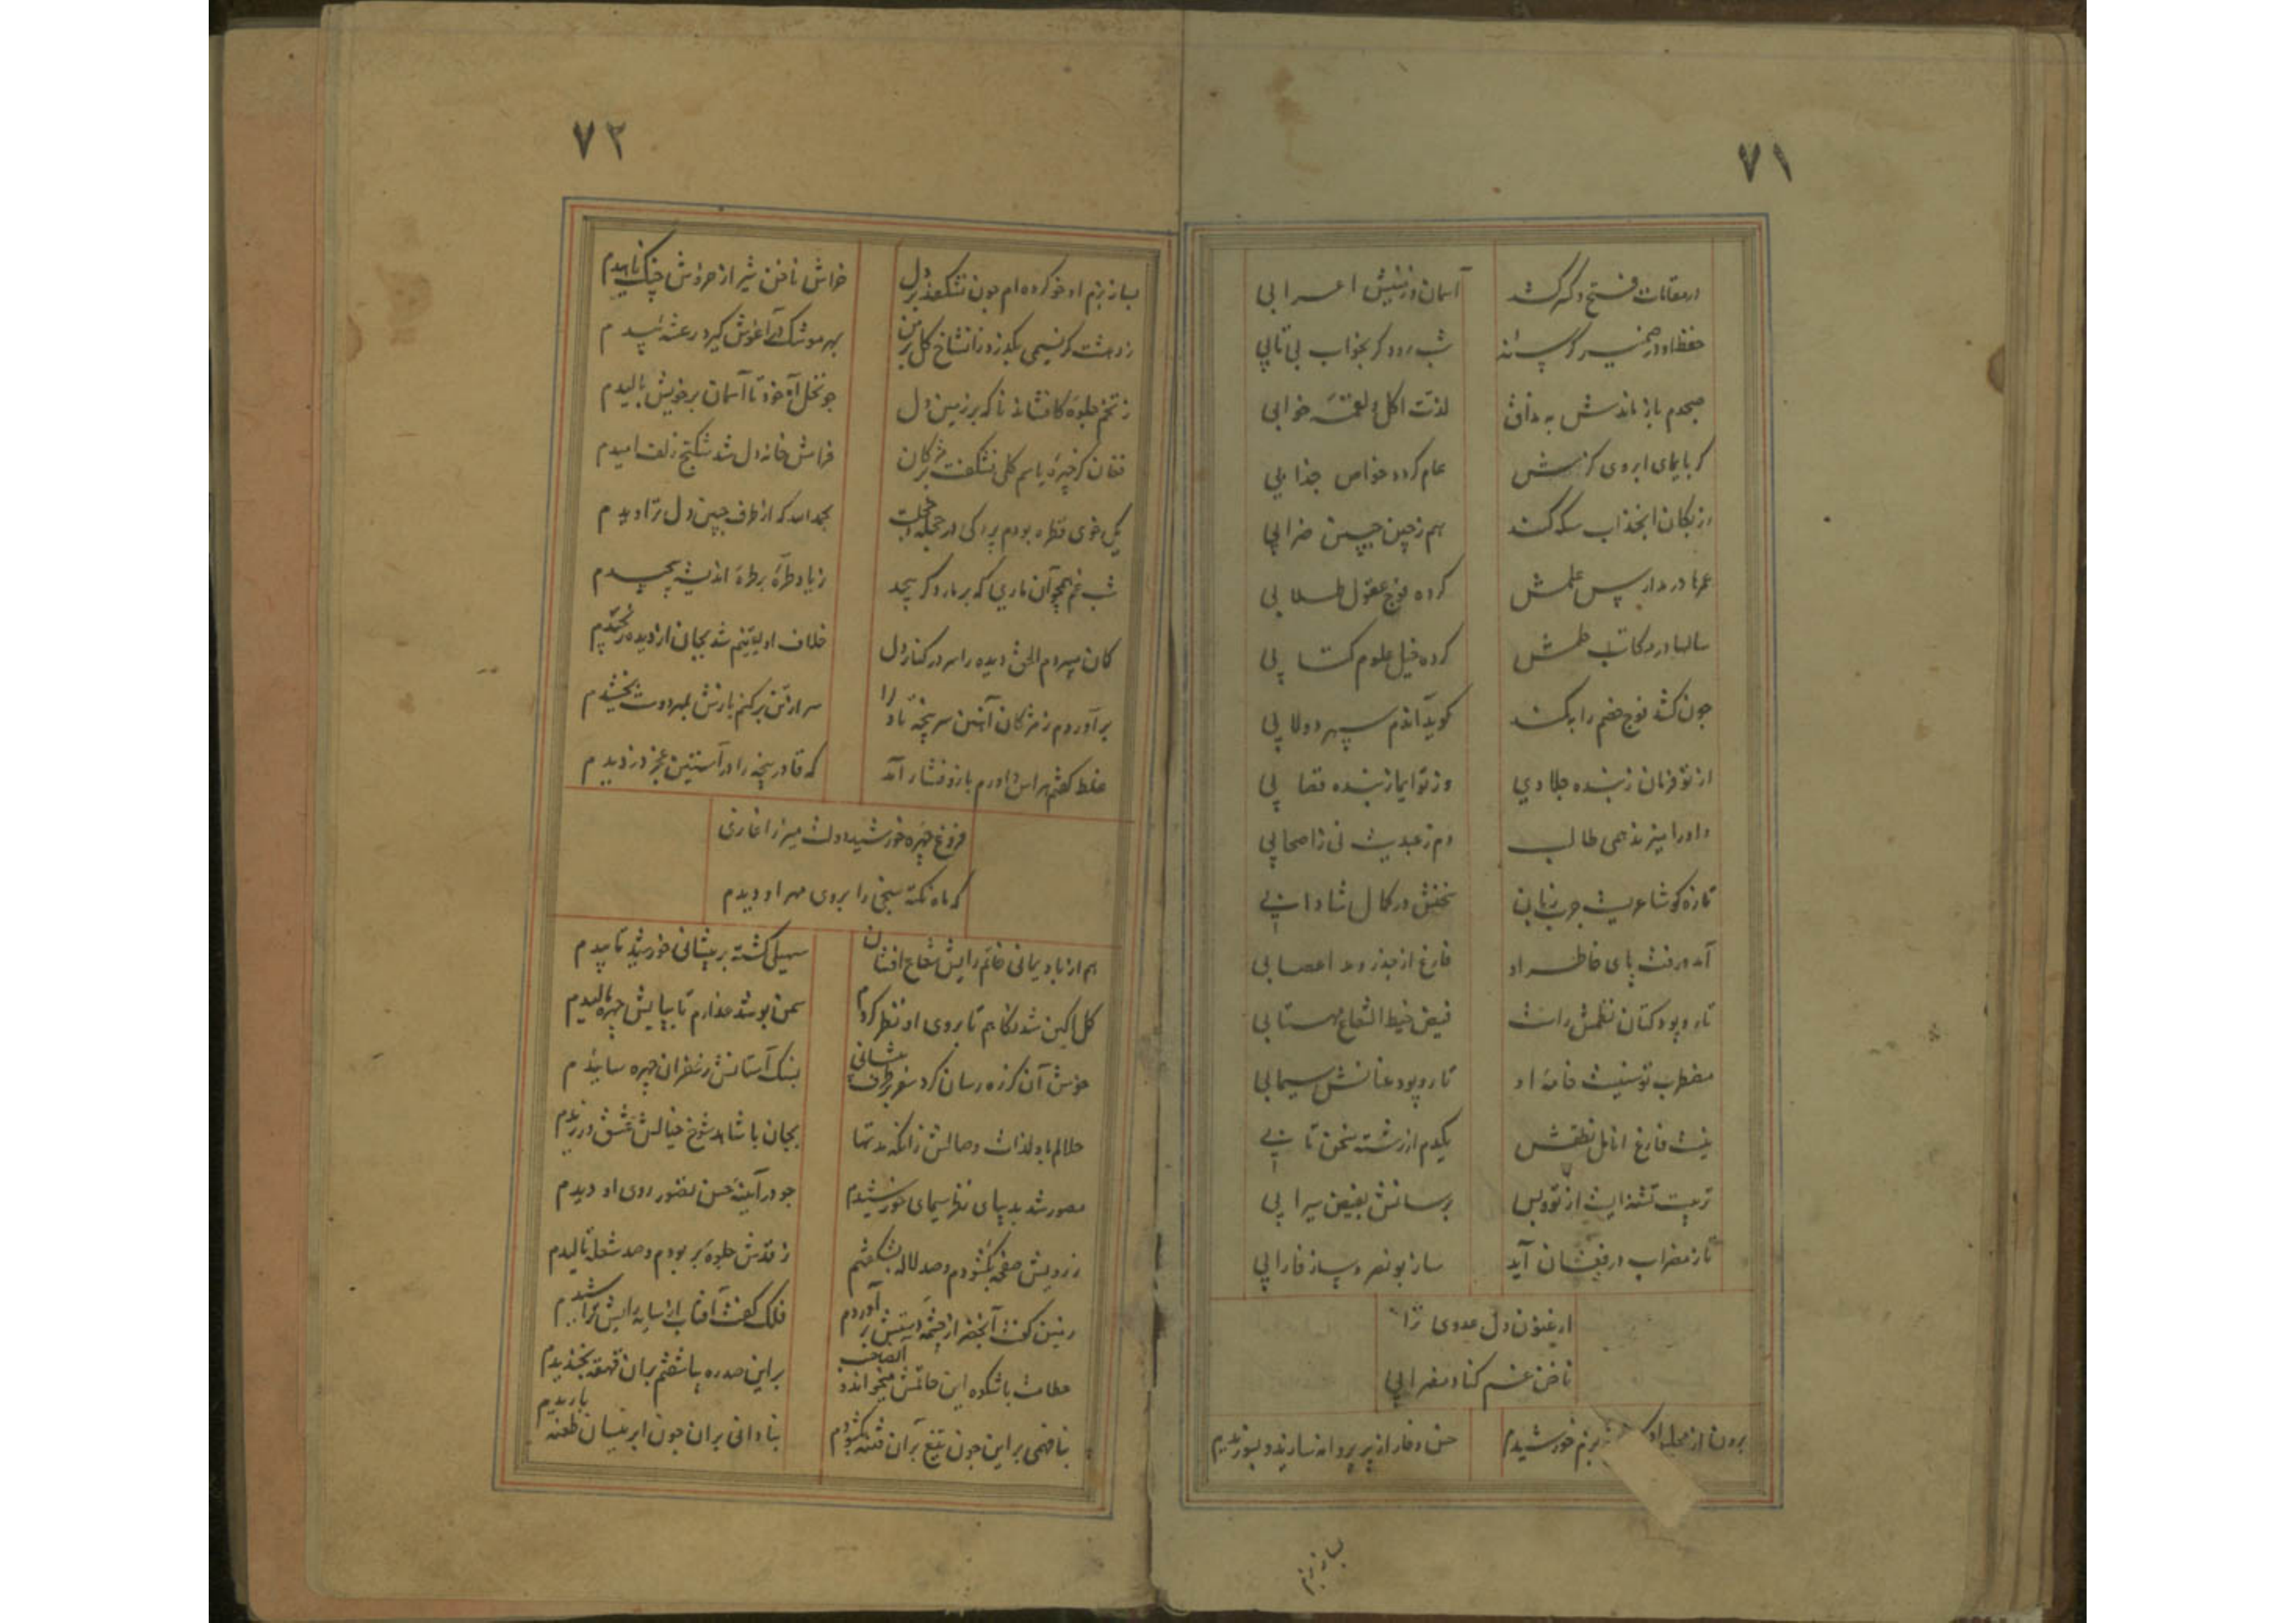 ۷۱
در مقامات فتح و کسر کشد آسمان در زمینش اعرابی
حفظ او در ضمیر گرسنه شب رود گر بخواب بی تابی
صبحدم باز ماندش به مذاق لذت اکل و لقمه خوابی
گر بایمای ابروی کرمش عام کرده خواص جذابی
هم ز چین جبین ضرابی
عمرها در مدارس علمش کرده فوج عقول طلابی
سالها در مکاتب حلمش کرده خیل علوم کتابی
چون کشد فوج خصم را بکمند کوید آندم سپهر دولابی
از تو فرمان ز بنده جلادی وز تو ایما ز بنده قصابی
داورا میرند همی طالب دم ز عبدیت نی ز اصحابی
تازه کو شاعریست چرب زبان سخنش در کمال شادابی
آمد و رفت پای خاطر او فارغ از جذر و مد اعصابی
تار و پود کتان نظمش راست فیض خیط الشعاع مهتابی
مضطرب توسنیست خامه او تار و پود عنانش سیمابی
نیست فارغ انامل نطقش یکدم از رشته سخن تابی
تربیت تشنه ایست از تو و بس برسانش بفیض سیرابی
تا ز مضراب در فغان آید ساز بونصر و ساز فارابی
ارغنون دل عدوی ترا
ناخن غم کناد مضرابی
برون از محفل او بزم خورشیدم خس و خار از پر پروانه سازید و بسوزیدم
بساز بزم
۷۲
بساز بزم او خو کرده ام چون نشکفد بر دل خراش ناخن شیر از خروش چنک ناهیدم
ز دهشت گر نسیمی بگذرد زان شاخ گل بر من بهر مو تنک در آغوش گیرد رعشه بیدم
ز تخم جلوه کافشاند ناگه بر زمین دل چو نخل آه خود تا آسمان بر خویش بالیدم
فغان کز خیره یاسم گلی نشکفت مژگان فراش خانه دل شد شکنج زلف امیدم
بحمدالله که از طرف جبین دل تراویدم
شب غم همچو آن ماری که بر مار دگر پیچد ز یاد طره بر طره اندیشه پیچیدم
کمان میبردم الحق دیده را سر در کنار دل خلاف او یقینم شد بجان از دیده رنجیدم
برآوردم ز مژگان آهنین سر پنجه باد را سر از تن برکنم بازش بمهر دوست بخشیدم
غلط گفتم هراس داورم بازو فشار آمد که قادر پنجه را در آستین عجز دزدیدم
فروغ چهره خورشید دولت میرزا غازی
که ماه نکته سنجی را بروی مهر او دیدم
هم از باد یمانی خاتم رایش شعاع افشان سهیلی گشته بر پیشانی خورشید تابیدم
گل آگین شد نگاهم تا بروی او نظر کردم سمن بو شد عذارم تا بپایش چهره مالیدم
بسنک آستانش زعفران چهره ساییدم
حلالم باد لذات وصالش زانکه مدتها بجان با شاهد شوخ خیالش عشق ورزیدم
مصور شد بدیبای نظر سیمای خورشیدم چو در آیینه حسن تصور روی او دیدم
ز رویش صفحه بگشودم و صد لاله بشکفتم ز قدش جلوه بر بودم و صد شعله بالیدم
زمین گفت آبخضر از چشمه دستش برآوردم فلک گفت آفتاب از سایه رایش تراشیدم
عطامت با شکوه این حاتمش میخواند و آن صاحب بر این صد ره بیاشفتم بر آن قهقه بخندیدم
بنافهمی بر این چون تیغ بران فتنه بگشودم بنادانی بر آن چون ابر نیسان طعنه باریدم